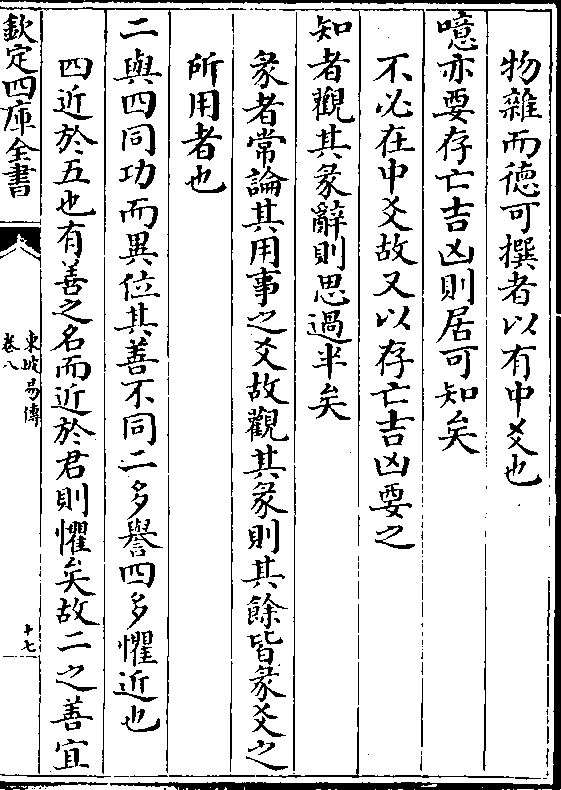 物雜而德可撰者以有中爻也
噫亦要存亡吉凶則居可知矣
不必在中爻故又以存亡吉凶要之
知者觀其彖辭則思過半矣
彖者常論其用事之爻故觀其彖則其餘皆彖爻之
所用者也
二與四同功而異位其善不同二多譽四多懼近也
四近於五也有善之名而近於君則懼矣故二之善宜
欽定四庫全書
東坡易傳
卷八
十七